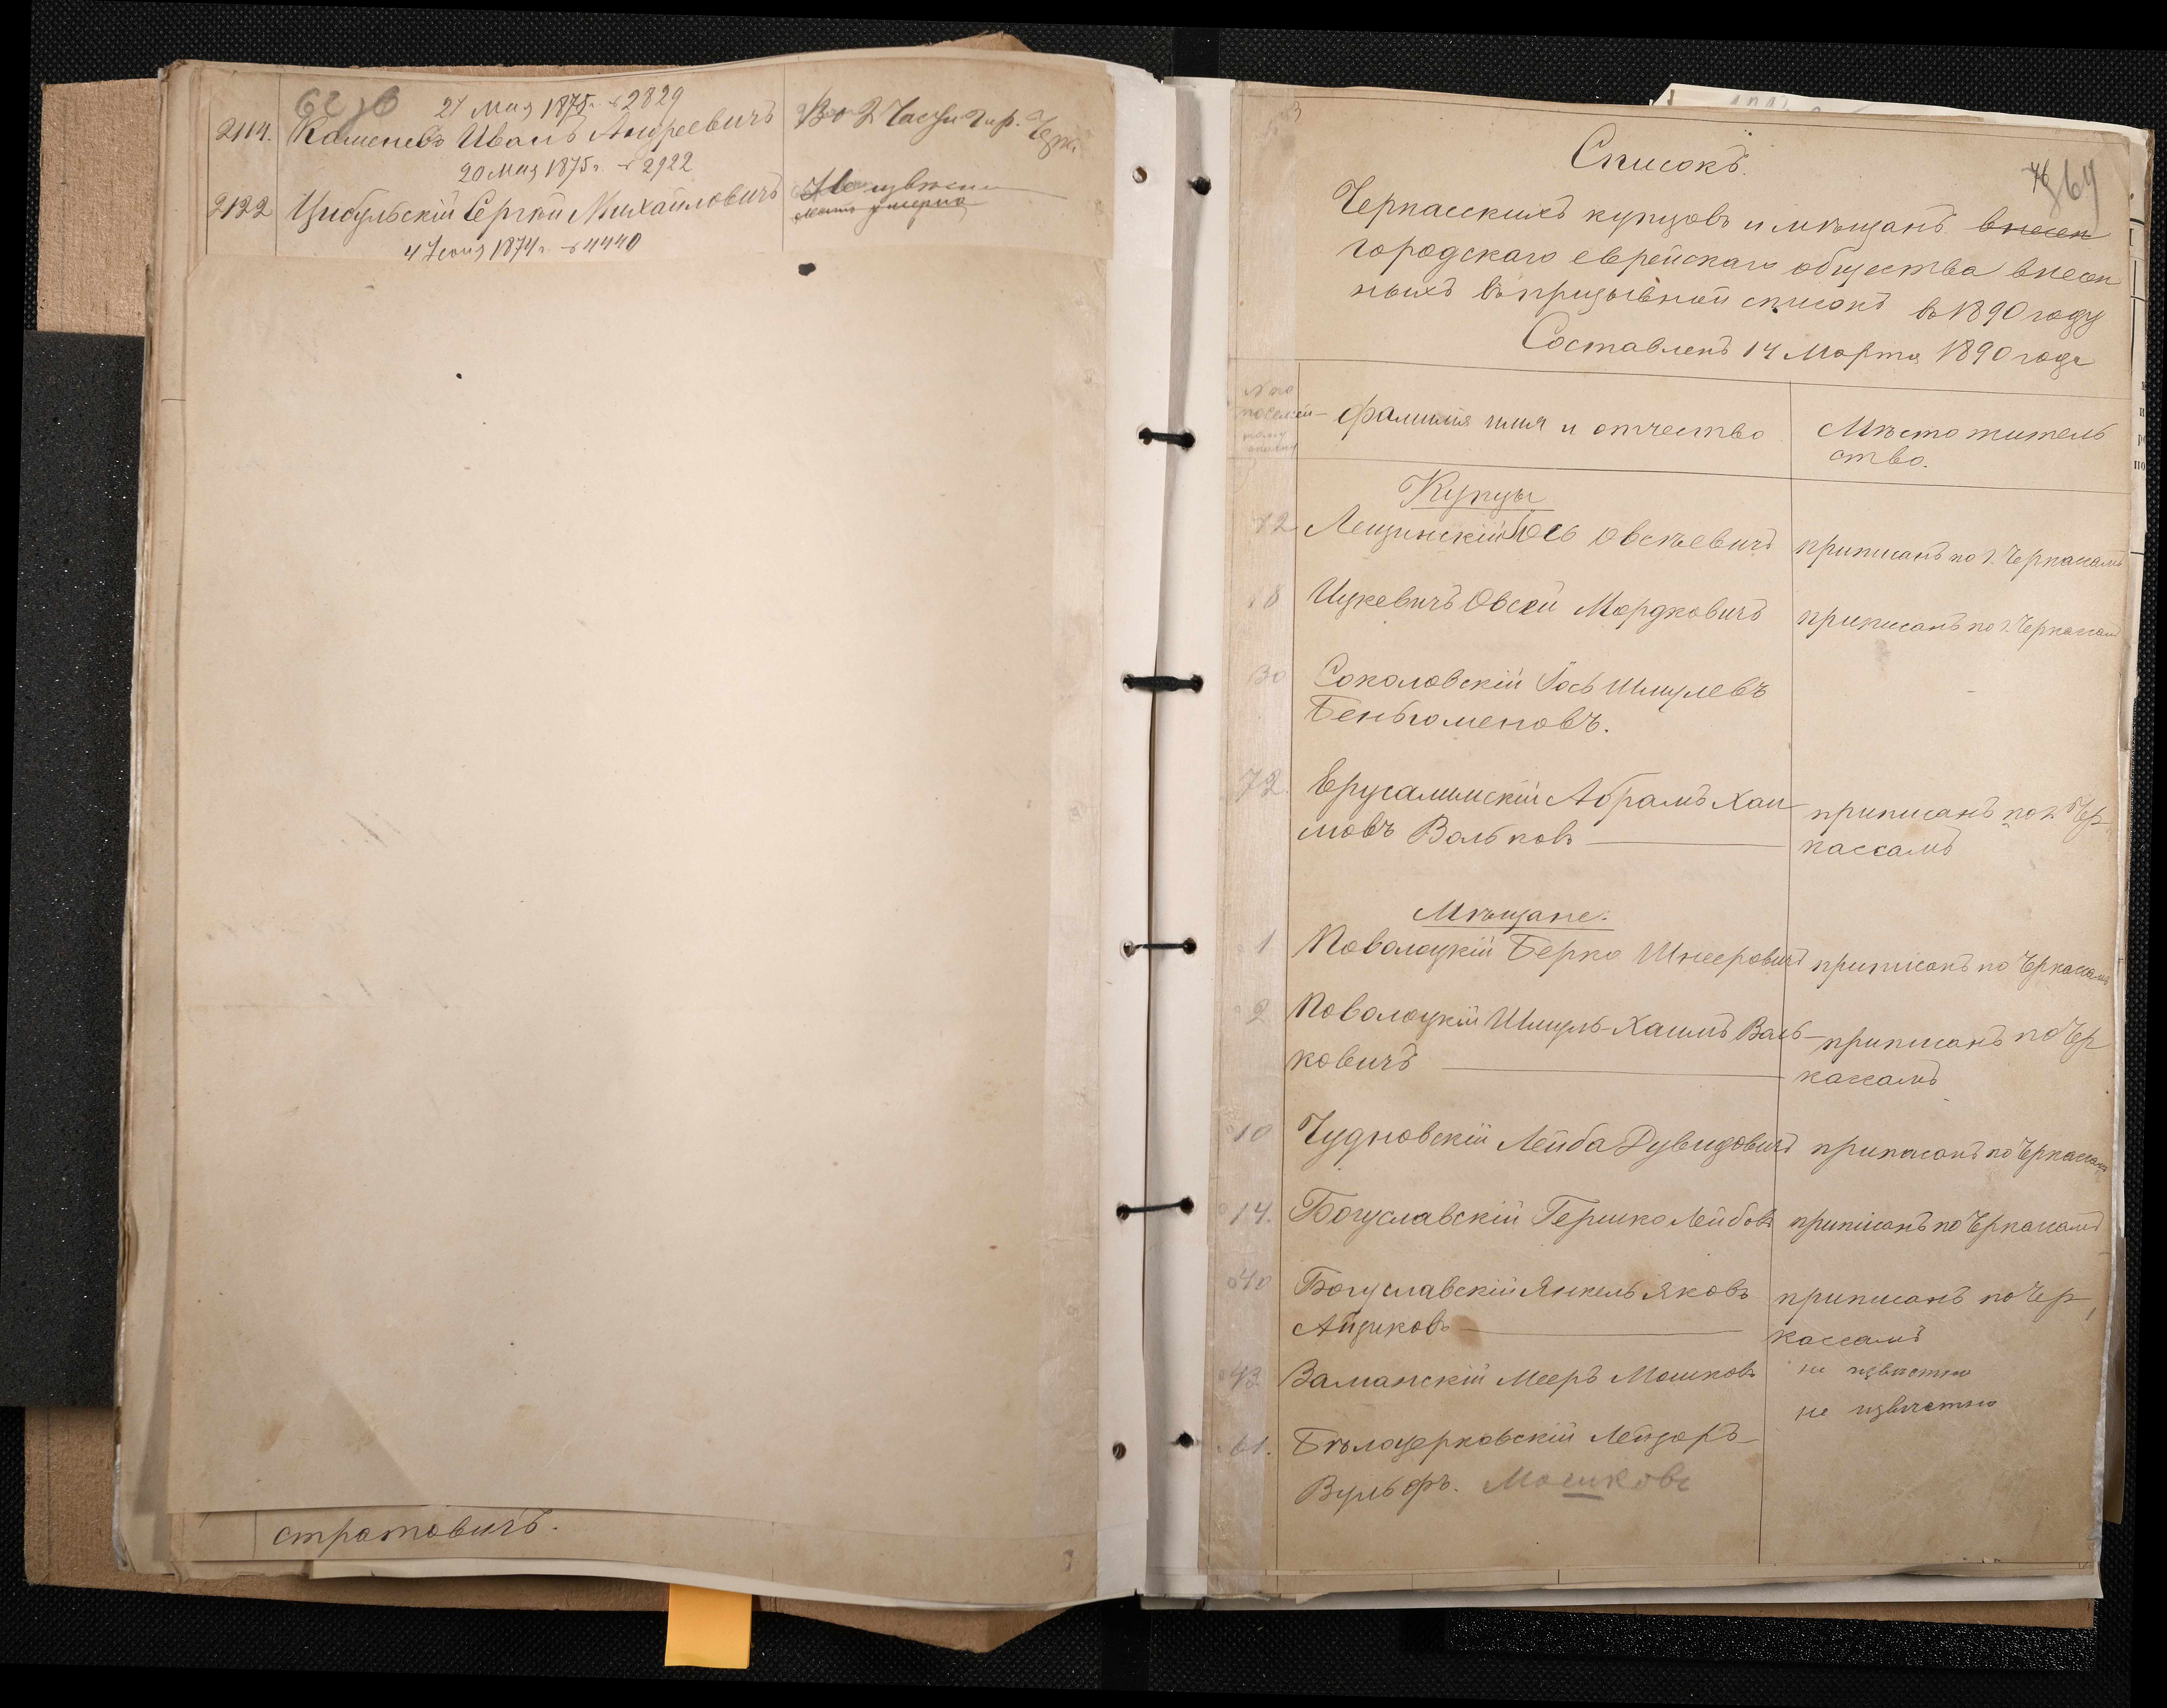 27 Мая 1875 г. № 2829
2114. Каменевъ Иванъ Андреевичъ Во 2 Части гор. Черк.
20 Мая 1875 г. № 2922
2122 Цибульскій Сергѣй Михайловичъ Не извѣстно
умерла
4 Іюня 1874 г. № 4440
стратовичъ.
64
Списокъ.
Черкасскихъ купцовъ и мѣщанъ внесен
городскаго еврейскаго общества внесен
ныхъ въ призывной списокъ въ 1890 году
Составленъ 14 Марта 1890 года
№ по
посемей-
ному
списку
фамилія имя и отчество
Мѣсто житель
ство.
Купцы
12 Лещинскій Іось Овсѣевичъ приписанъ по г. Черкассамъ
18 Ицкевичъ Овсей Мордковичъ приписанъ по г. Черкассам
30 Соколовскій Іось Шмулевъ
Беньюменовъ.
72. Ерусалимскій Абрамъ Хаи- приписанъ по г. Чер-
мовъ Вольковъ кассамъ
Мѣщане.
1 Поволоцкій Берко Шнееровичъ приписанъ по Черкассамъ
2 Поволоцкій Шмуль-Хаимъ Валь- приписанъ по Чер
ковичъ кассамъ
10 Чудновскій Лейба Дувидовичъ приписанъ по Черкассамъ
14. Богуславскій Гершко Лейбовъ приписанъ по Черкассамъ
40 Богуславскій Янкель Яковъ приписанъ по Чер,
Айзиковъ кассамъ
43 Заманскій Мееръ Мошковъ не извѣстно
не извѣстно
61. Бѣлоцерковскій Лейзоръ-
Вульфъ. Мошковъ